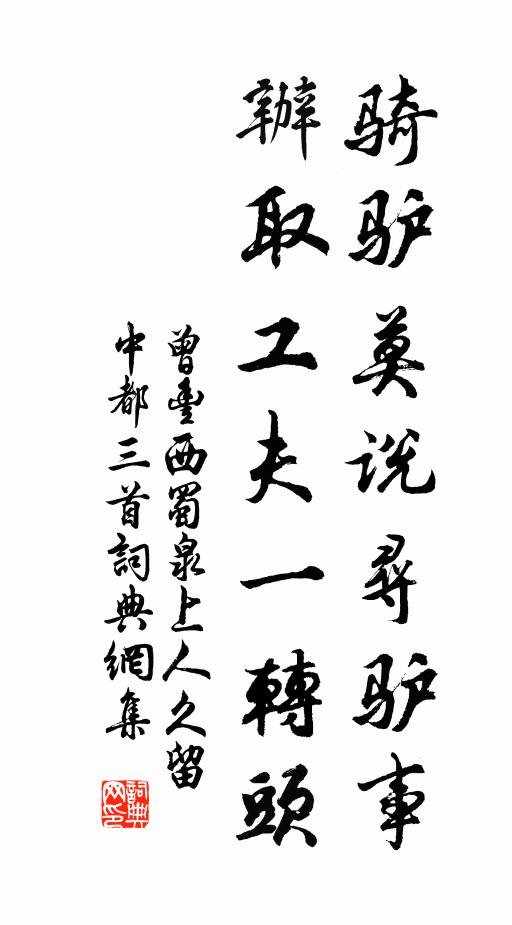 骑驴莫说尋驴事
辦取工夫一轉頭
曾豊西蜀泉上人久留
中都三首詞典網集
詞典
网印